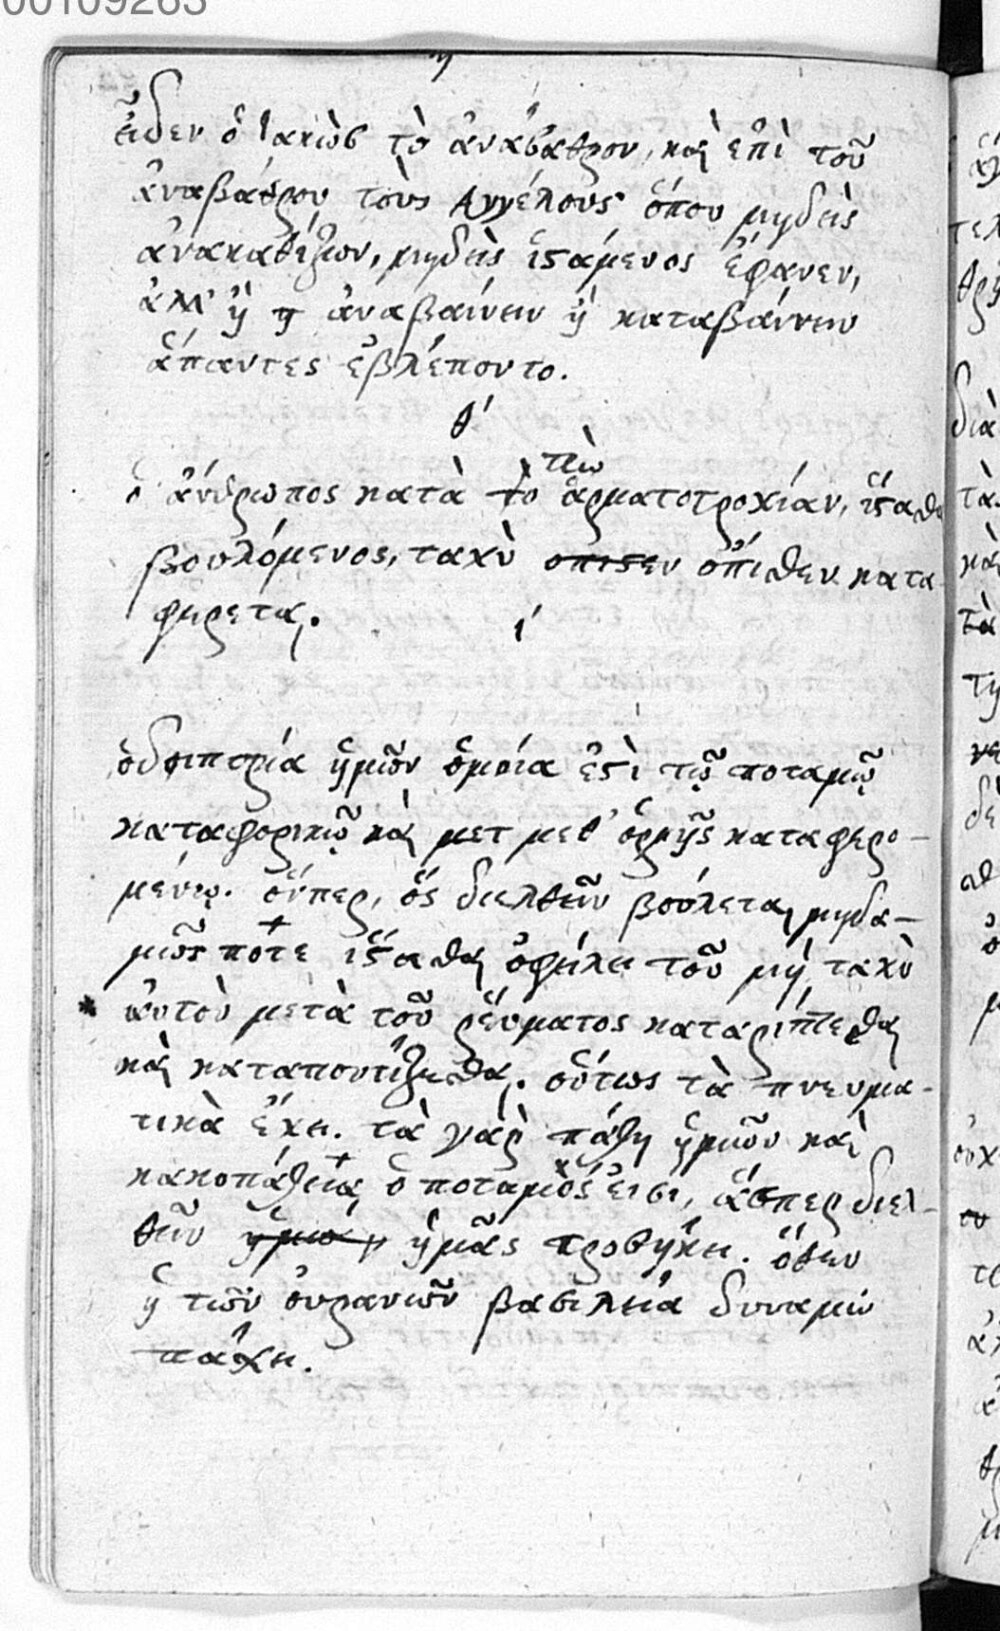 00109263
η
εἶδεν ὁ Ἰακὼβ τὸ ἀνάβαθρον, καὶ ἐπὶ τοῦ
ἀναβάθρου τοὺς Ἀγγέλους· ὅπου μηδεὶς
ἀνακαθίζων, μηδεὶς ἱστάμενος ἐφάνεν,
ἀλλ' ἢ ἀναβαίνειν ἢ καταβαίνειν
ἅπαντες ἐβλέποντο.
θ'
ὁ ἄνθρωπος κατὰ τὸ τὴν ἁρματοτροχίαν, ἵστασθαι
βουλόμενος, ταχὺ οπισεν ὄπιθεν κατα-
φέρεται.
ι'
ὁδοιπορία ἡμῶν ὁμοία ἐστὶ τῷ ποταμῷ
καταφορικῷ καὶ μετ μεθ' ὁρμῆς καταφερο-
μένῳ. οὗπερ, ὃς διελθεῖν βούλεται, μηδα-
μῶς ποτε ἵστασθαι ὀφείλει τοῦ μὴ ταχὺ
* αὐτὸν μετὰ τοῦ ῥεύματος καταρίπτεσθαι
καὶ καταποντίζεσθαι. οὕτως τὰ πνευμα-
τικὰ ἔχει. τὰ γὰρ πάθη ἡμῶν καὶ
κακοπάθεια ὁ ποταμὸς εἰσι, ἅσπερ διελ-
θεῖν ἡμῶν ἡμᾶς προσήκει. ὅθεν
ἡ τῶν οὐρανῶν βασιλεία δυναμιν
πάσχει.